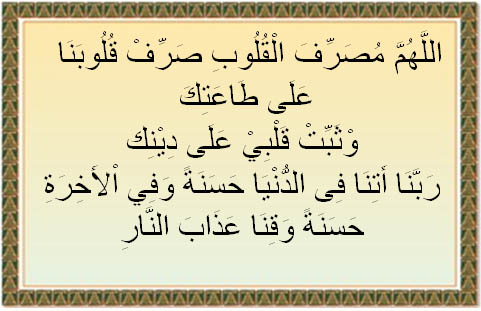 اللَّهُمَّ مُصَرِّفَ الْقُلُوبِ صَرِّفْ قُلُوبَنَا
عَلَى طَاعَتِكَ
وْثَبِّتْ قَلْبِيْ عَلَى دِيْنِكَ
رَبَّنَا أَتِنَا فِى الدُّنْيَا حَسَنَةً وَفِي اْلأَخِرَةِ
حَسَنَةً وَقِنَا عَذَابَ النَّارِ